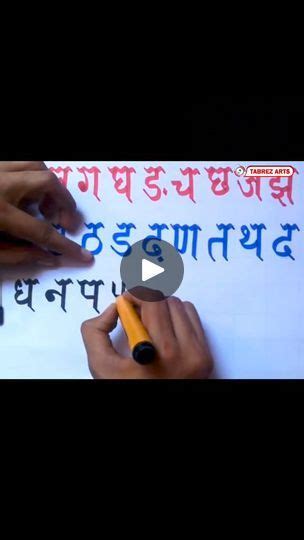 TABREZ ARTS
ग घ ङ च छ ज झ
ठ ड ढ़ ण त थ द
ध न प